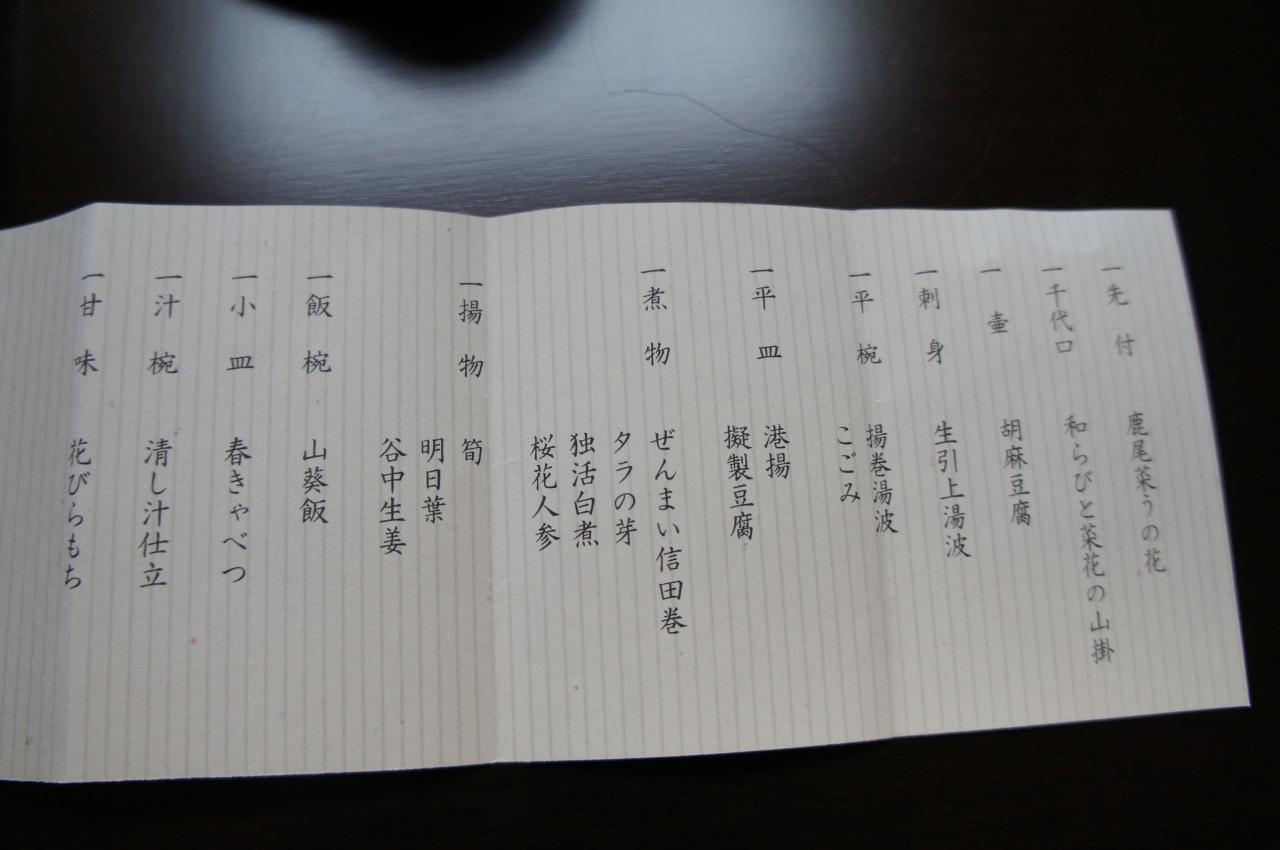 一先付 鹿尾菜うの花
一千代口 和らびと菜花の山掛
一壷 胡麻豆腐
一刺身 生引上湯波
一平椀 揚巻湯波
こごみ
一平皿 港揚
擬製豆腐
一煮物 ぜんまい信田巻
タラの芽
独活白煮
桜花人参
一揚物 筍
明日葉
谷中生姜
一飯椀 山葵飯
一小皿 春きゃべつ
一汁椀 清し汁仕立
一甘味 花びらもち